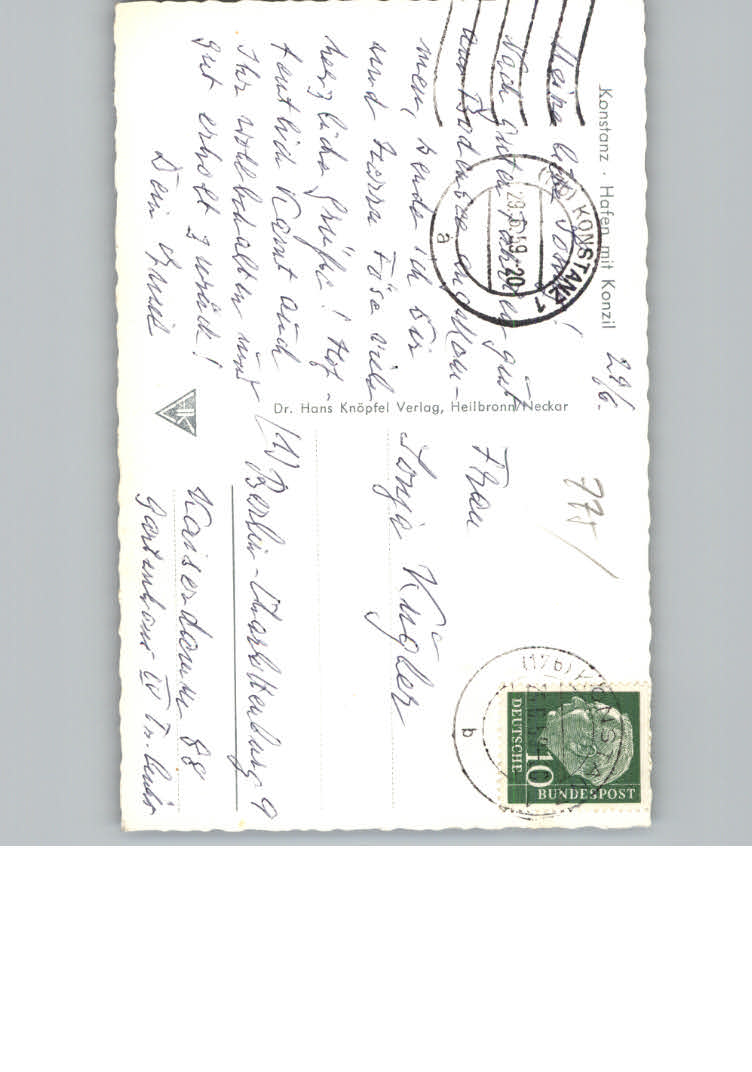 Konstanz · Hafen mit Konzil
29/6.
Meine liebe Sonja!
Nach guter Fahrt gut
am Bodensee angekom-
men, sende ich Dir
und Herrn Töse viele
herzliche Grüße! Hof-
fentlich kamt auch
Ihr wohlbehalten und
gut erholt zurück!
Dein
(17b) KONSTANZ 1
29.6.59-20
a
Dr. Hans Knöpfel Verlag, Heilbronn/Neckar
K
775/
Frau
Sonja Kügler
(1) Berlin-Charlottenburg 9
Kaiserdamm 88
Gartenhaus IV Tr. links
(17b) KONSTANZ
b
DEUTSCHE
10
BUNDESPOST